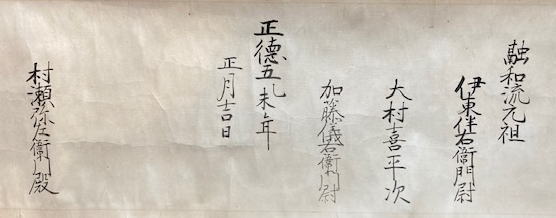 融和流元祖
伊東伴右衛門尉
大村喜平次
加藤儀右衛門尉
正徳五乙未年
正月吉日
村瀬弥左衛門殿